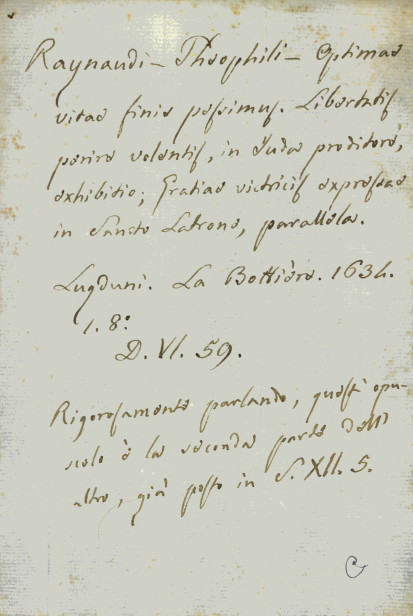 Raynaudi - Theophili - Optimae
vitae finis pessimus. Libertatis
perire volentis, in Juda proditore,
exhibitio; Gratiae victricis expressae
in Sancto Latrone, parallela.
Lugduni. La Bottière. 1634.
1. 8:
D. VI. 59.
Rigorosamente parlando, quest' opu-
scolo è la seconda parte dell'
altro, già posto in S. XII. 5.